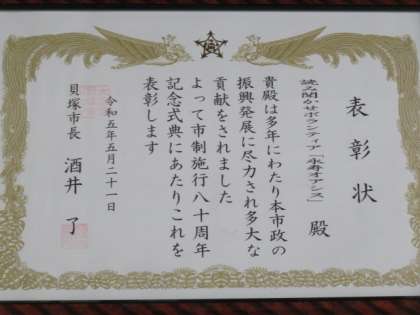 表彰状
読み聞かせボランティア「永寿オアシス」殿
貴殿は多年にわたり本市政の
振興発展に尽力され多大な
貢献をされました
よって市制施行八十周年
記念式典にあたりこれを
表彰します
令和五年五月二十一日
貝塚市長 酒井 了